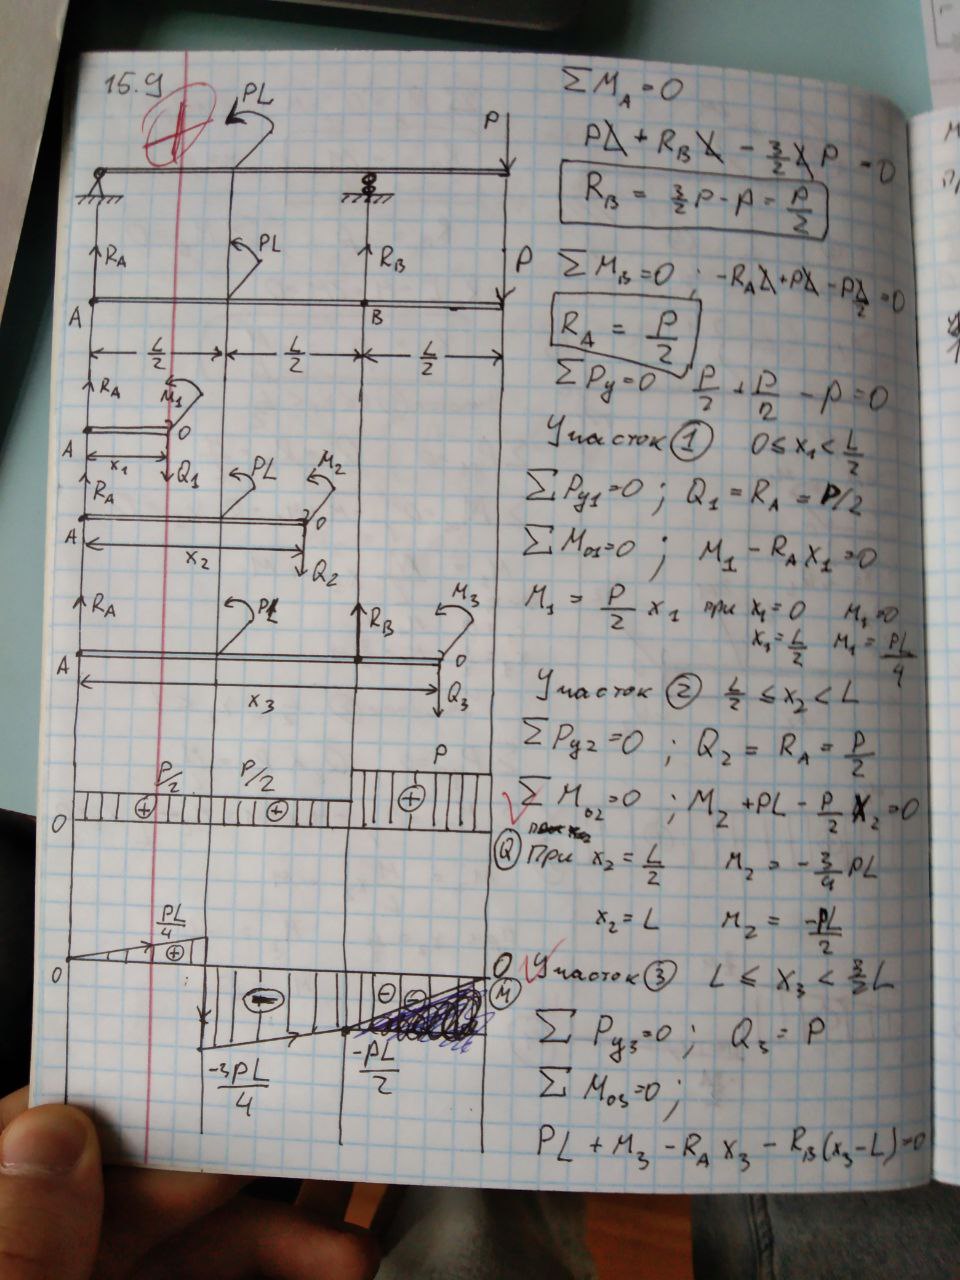 15.9
PL
P
R_A
PL
R_B
P
A
B
L/2
L/2
L/2
R_A
M_1
A
O
x_1
Q_1
R_A
PL
M_2
A
O
x_2
Q_2
R_A
PL
R_B
M_3
A
O
x_3
Q_3
P/2
P/2
P
+
+
+
O
Q
PL/4
+
O
O
M
-
-
-
-3PL/4
-PL/2
ΣM_A=0
PL + R_B L - 3/2 L P = 0
R_B = 3/2 P - P = P/2
ΣM_B=0 ; -R_A L + PL - P L/2 = 0
R_A = P/2
ΣPy=0 P/2 + P/2 - P = 0
Участок 1 0 ≤ x_1 < L/2
ΣPy1=0 ; Q_1 = R_A = P/2
ΣM_o1=0 ; M_1 - R_A x_1 = 0
M_1 = P/2 x_1 при x_1 = 0 M_1 = 0
x_1 = L/2 M_1 = PL/4
Участок 2 L/2 ≤ x_2 < L
ΣPy2=0 ; Q_2 = R_A = P/2
ΣM_o2=0 ; M_2 + PL - P/2 x_2 = 0
При x_2 = L/2 M_2 = -3/4 PL
x_2 = L M_2 = -PL/2
Участок 3 L ≤ x_3 < 3/2 L
ΣPy3=0 ; Q_3 = P
ΣM_o3=0 ;
PL + M_3 - R_A x_3 - R_B (x_3 - L) = 0